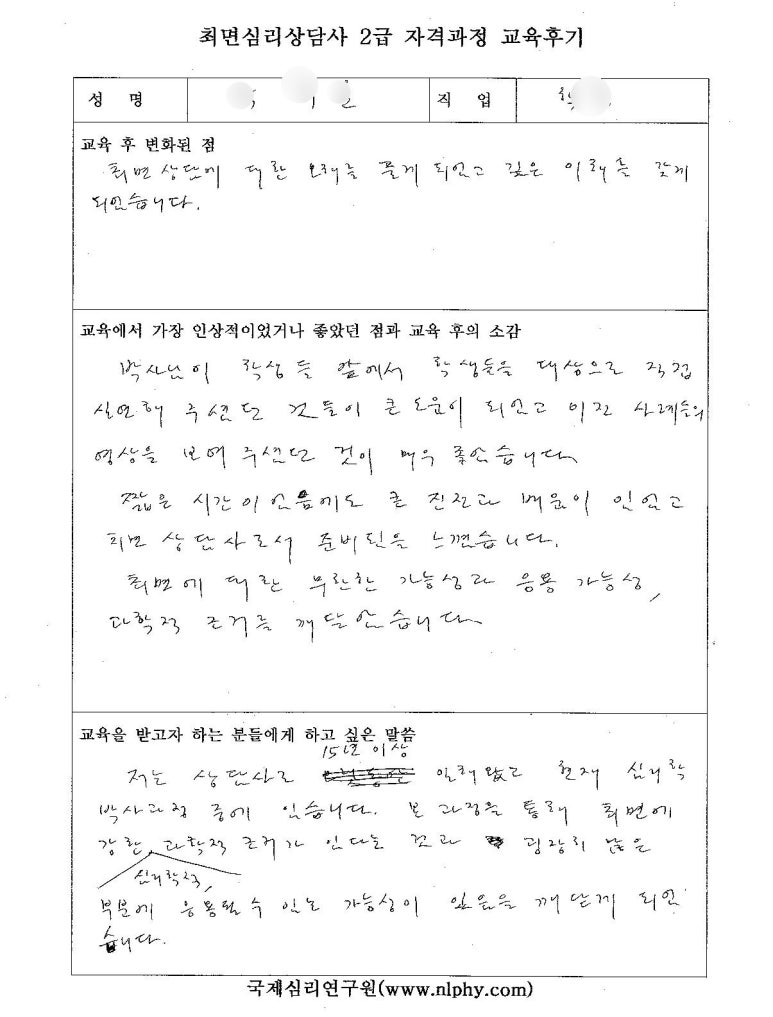 최면심리상담사 2급 자격과정 교육후기
성 명
직 업
교육 후 변화된 점
최면상담에 대한 오해를 풀게 되었고 깊은 이해를 갖게
되었습니다.
교육에서 가장 인상적이었거나 좋았던 점과 교육 후의 소감
박사님이 학생들 앞에서 학생들을 대상으로 직접
실연해 주셨던 것들이 큰 도움이 되었고 이전 사례들의
영상을 보여 주셨던 것이 매우 좋았습니다
짧은 시간이었음에도 큰 진전과 배움이 있었고
최면 상담사로서 준비됨을 느꼈습니다.
최면에 대한 무한한 가능성과 응용 가능성,
과학적 근거를 깨달았습니다
교육을 받고자 하는 분들에게 하고 싶은 말씀
15년 이상
저는 상담사로 일해왔고 현재 심리학
박사과정 중에 있습니다. 본 과정을 통해 최면에
강한 과학적 근거가 있다는 것과 굉장히 많은
심리학적,
부분에 응용될 수 있는 가능성이 있음을 깨닫게 되었
습니다.
국제심리연구원(www.nlphy.com)